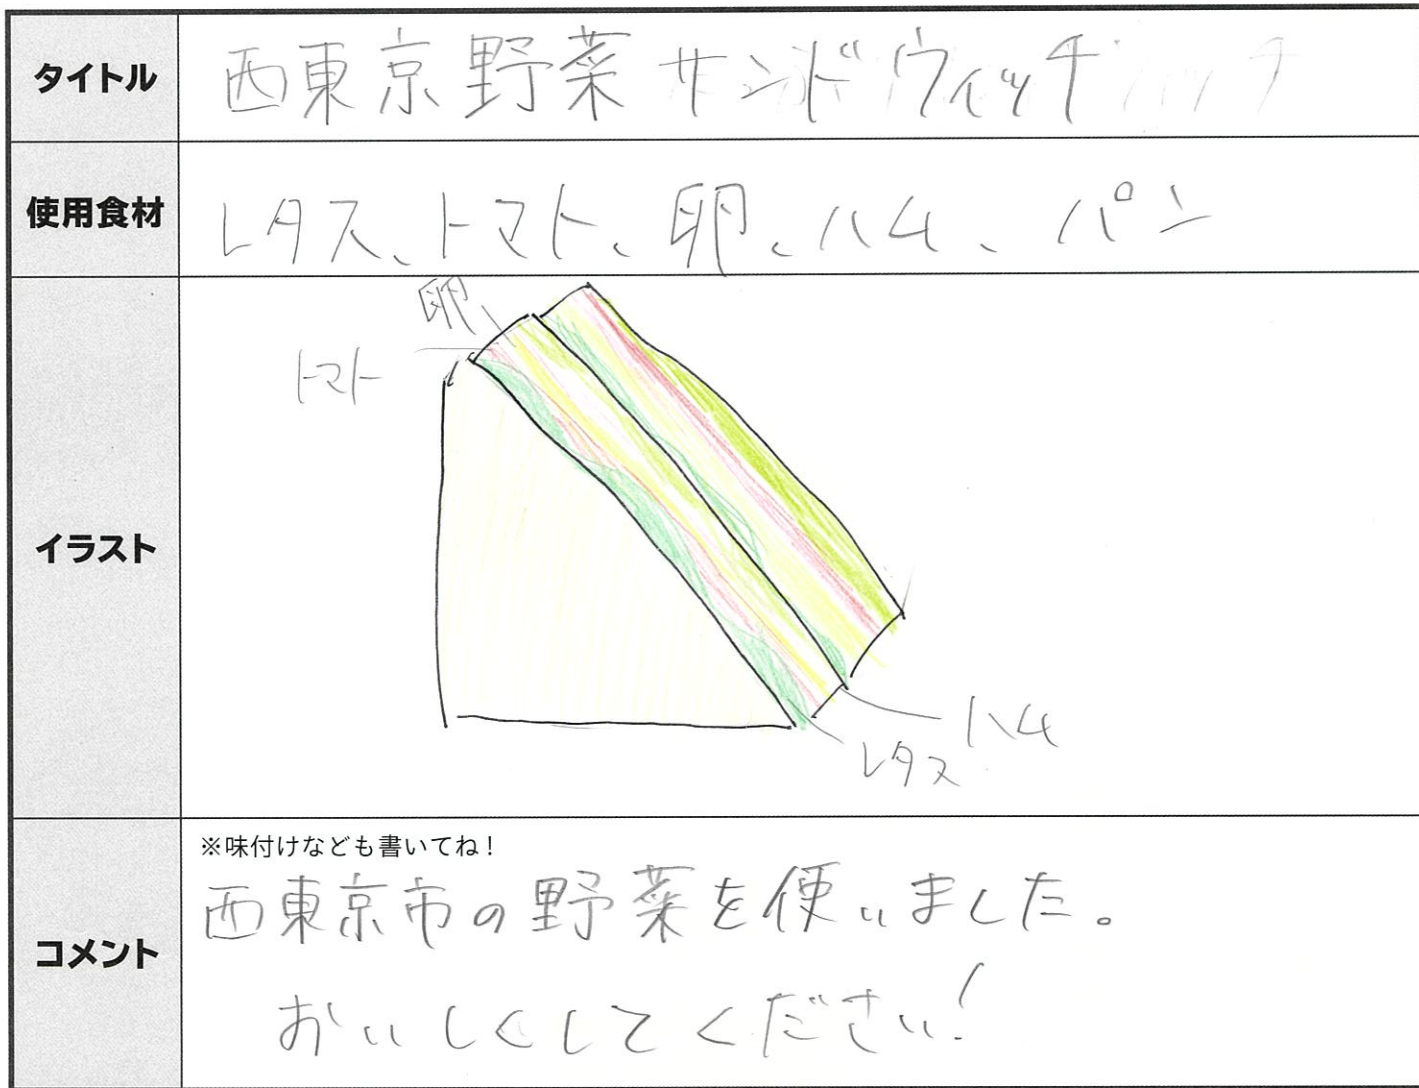 タイトル
西東京野菜サンドウィッチ
使用食材
レタス、トマト、卵、ハム、パン
イラスト
卵
トマト
ハム
レタス
コメント
※味付けなども書いてね！
西東京市の野菜を使いました。
おいしくしてください！